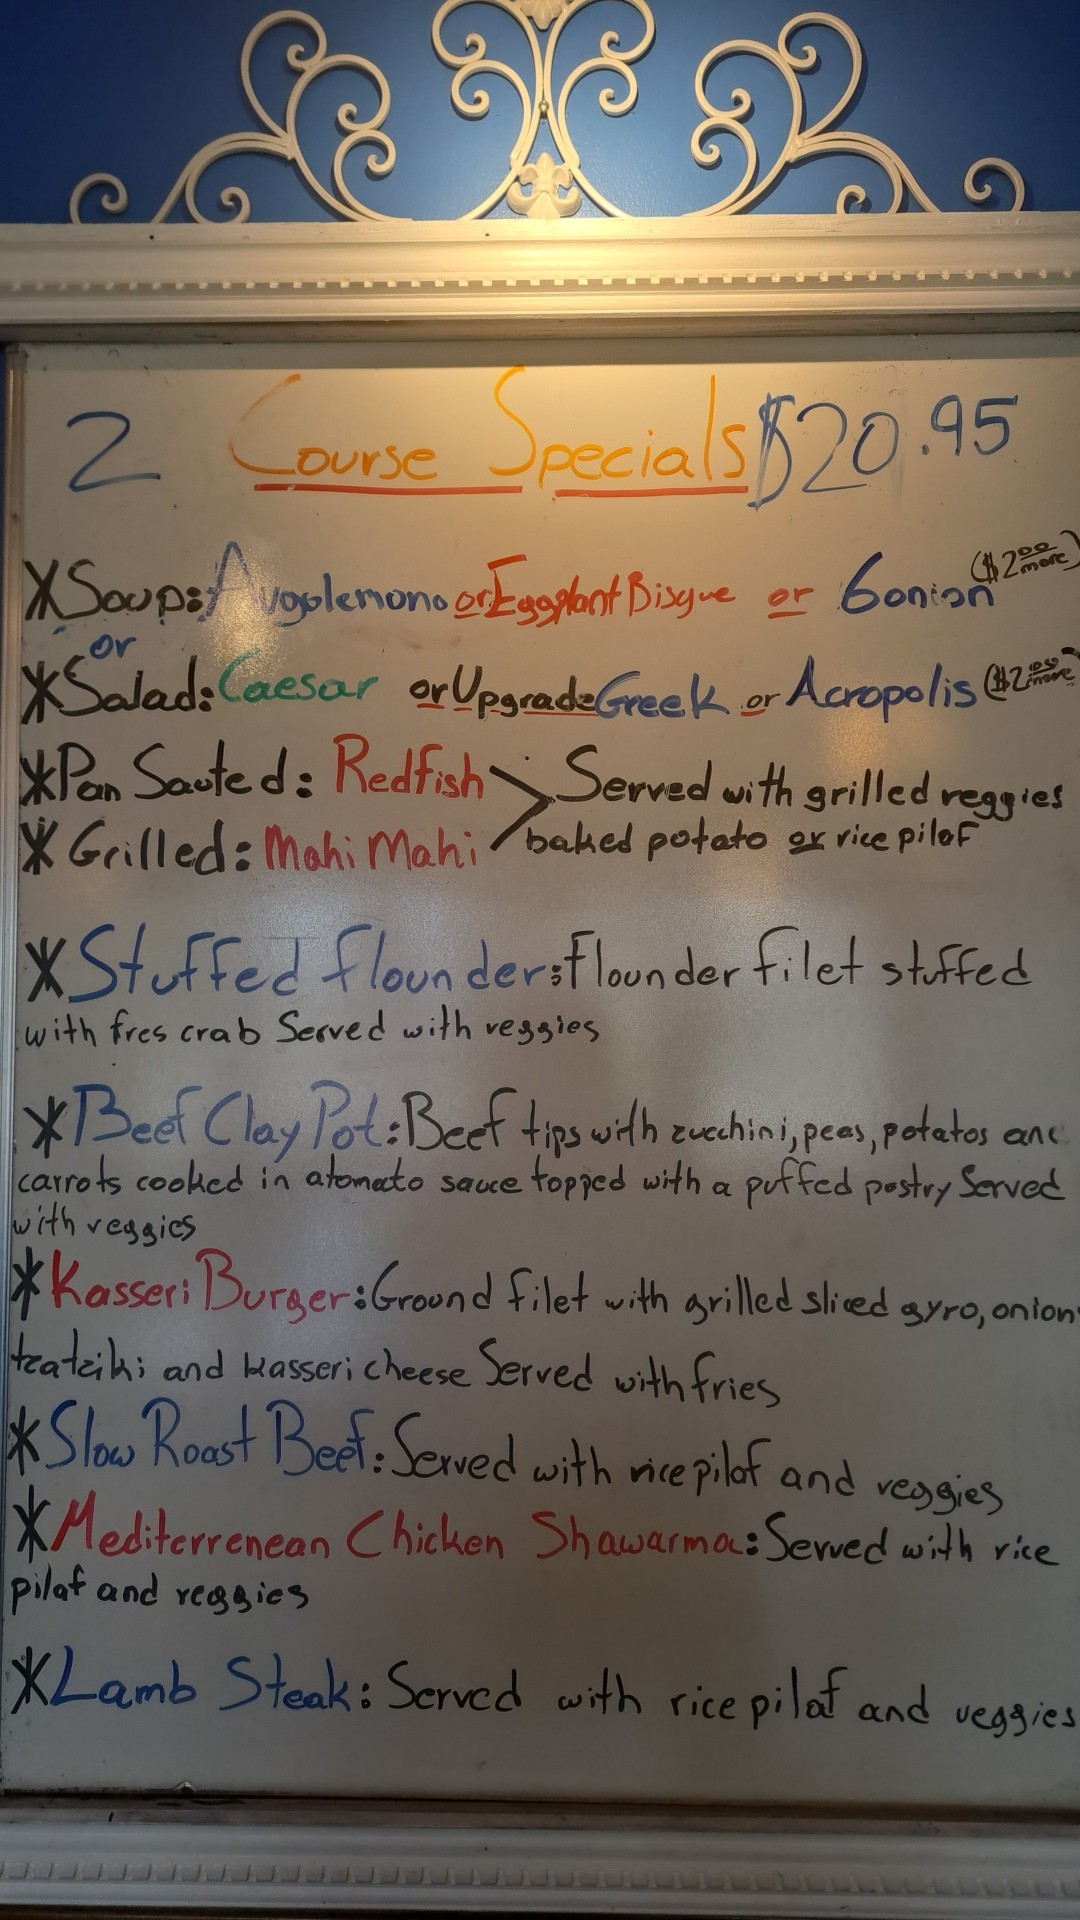 2 Course Specials $20.95
*Soup: Avgolemono or Eggplant Bisque or 6onion ($2.00 more)
or
*Salad: Caesar or Upgrade Greek or Acropolis ($2.00 more)
*Pan Sauted: Redfish > Served with grilled veggies
*Grilled: Mahi Mahi baked potato or rice pilaf
*Stuffed flounder: flounder filet stuffed
with fres crab Served with veggies
*Beef Clay Pot: Beef tips with zucchini, peas, potatos and
carrots cooked in a tomato sauce topped with a puffed pastry Served
with veggies
*Kasseri Burger: Ground filet with grilled sliced gyro, onion
tzatziki and kasseri cheese Served with fries
*Slow Roast Beef: Served with rice pilaf and veggies
*Mediterrenean Chicken Shawarma: Served with rice
pilaf and veggies
*Lamb Steak: Served with rice pilaf and veggies